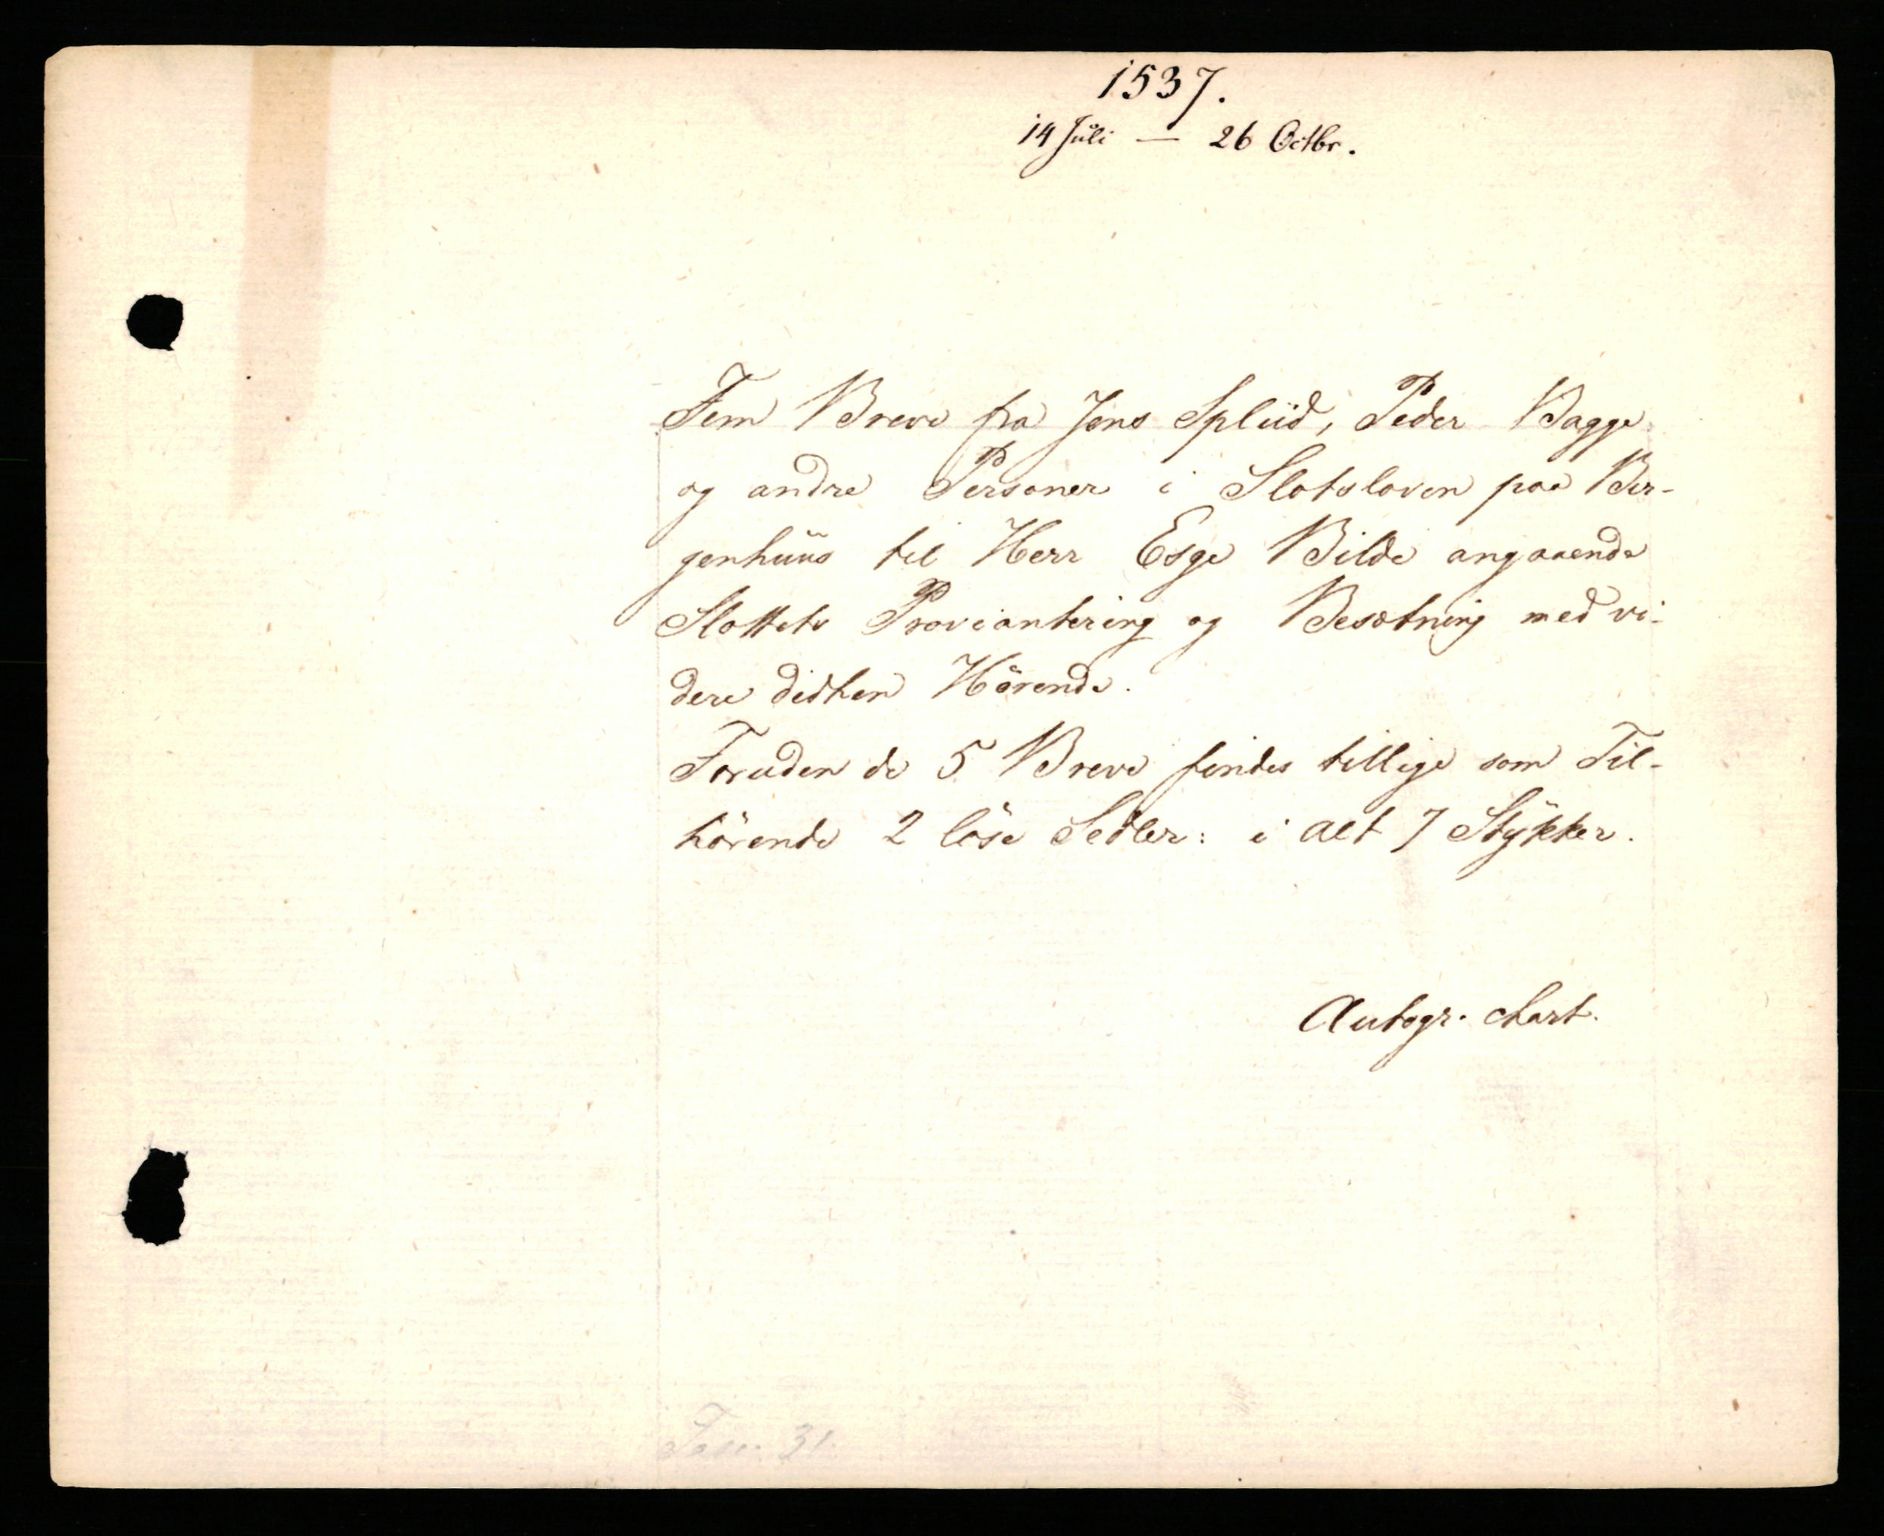 1537.
14 Juli — 26 Octbr.
Fem Breve fra Jens Spliid, Peder Bagge
og andre Personer i Slotsloven paa Ber-
genhuus til Herr Esge Bilde angaaende
Slottets Proviantering og Besætning med vi-
dere didhen Hörende.
Foruden de 5 Breve findes tillige som Til-
hörende 2 löse Sedler: i alt 7 Stykker.
Autogr. chart.
Fasc. 31.